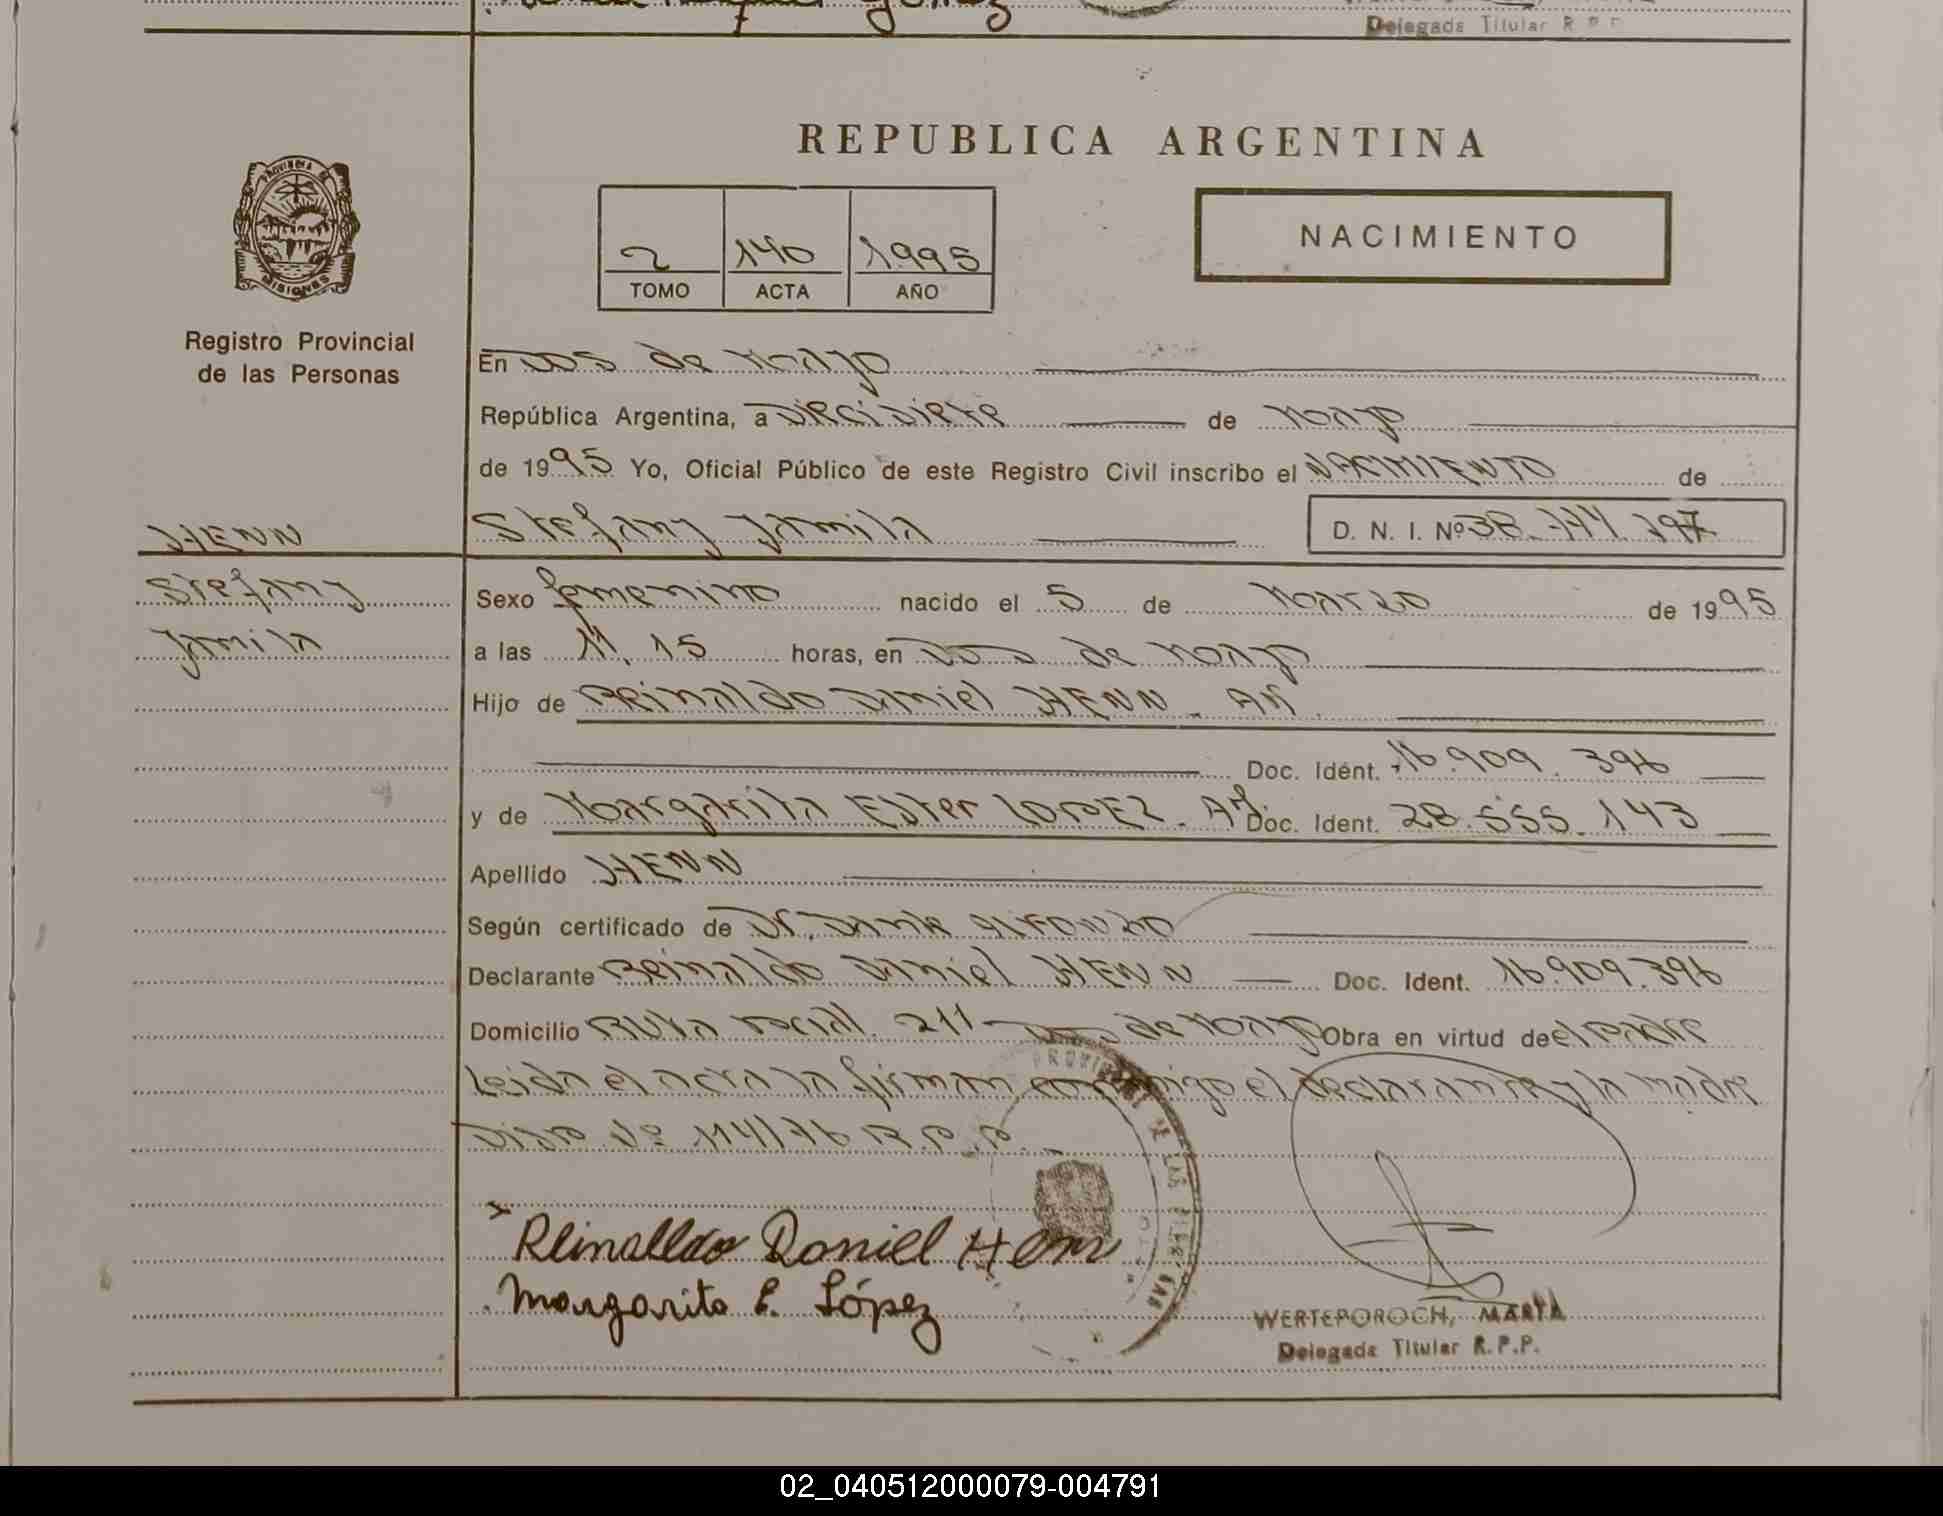 Delegada Titular R.P.P.
REPUBLICA ARGENTINA
PROVINCIA DE
MISIONES
2 140 1995
TOMO ACTA AÑO
NACIMIENTO
Registro Provincial
de las Personas
En DOS de Mayo
República Argentina, a Diecisiete de Mayo
de 1995 Yo, Oficial Público de este Registro Civil inscribo el NACIMIENTO de
HENN Stefany Jamila D. N. I. Nº 38.774.797
Stefany Sexo femenino nacido el 5 de Marzo de 1995
Jamila a las 11.15 horas, en Dos de Mayo
Hijo de Reinaldo Daniel HENN - AR.
Doc. Idént. 16.909.396
y de Margarita Ester LOPEZ - AR. Doc. Ident. 28.555.143
Apellido HENN
Según certificado de Dr. Dante ALFONZO
Declarante Reinaldo Daniel HENN Doc. Ident. 16.909.396
Domicilio Ruta Pcial. 211 - Dos de Mayo Obra en virtud de el padre
Leida el acta la firman conmigo el declarante y la madre
Disp Nº 114/76 R.P.P. -
x Reinaldo Daniel Henn
Margarita E. López
WERTEPOROCH, MARTA
Delegada Titular R.P.P.
02_040512000079-004791